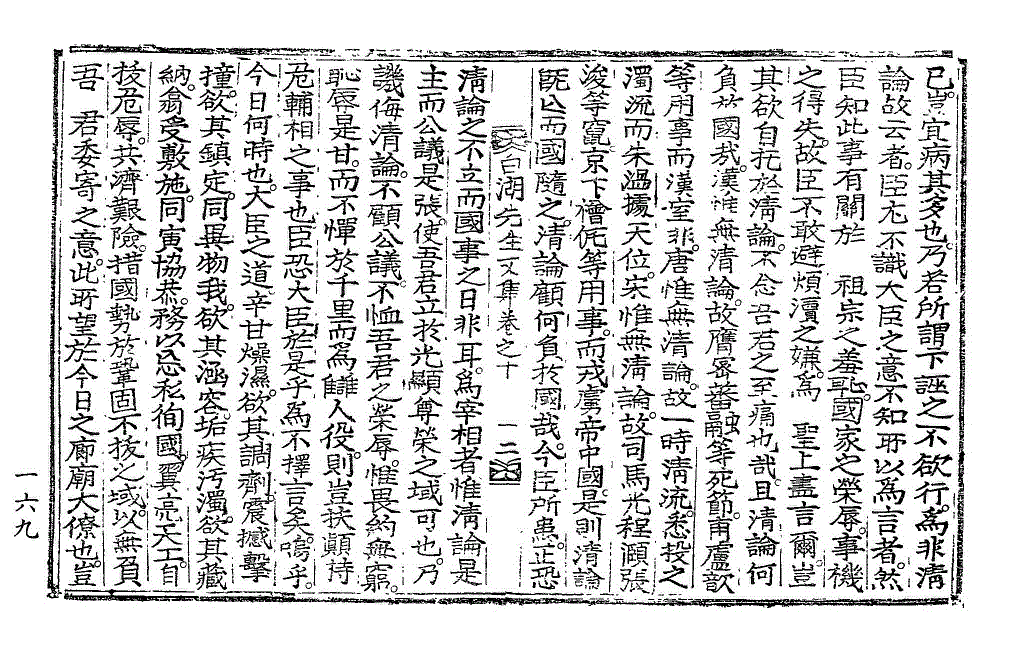 已豈宜病其多也乃若所謂下誣之不欲行爲非淸
論故云者臣尤不識大臣之意不知所以爲言者然
臣知此事有關於 祖宗之羞恥國家之榮辱事機
之得失故臣不敢避煩瀆之嫌爲 聖上盡言爾豈
其欲自托於淸論不念吾君之至痛也哉且淸論何
負於國哉漢惟無淸論故膺密蕃融等死節甫盧歆
等用事而漢室非唐惟無淸論故一時淸流悉投之
濁流而朱溫據天位宋惟無淸論故司馬光程灝張
浚等竄京下檜侂等用事而戎虜帝中國是則淸論
旣亡而國隨之淸論顧何負於國哉今臣所患正恐
白湖先生文集卷之十 一二
淸論之不立而國事之日非耳爲宰相者惟淸論是
主而公議是張使吾君立於光顯尊榮之域可也乃
譏侮淸論不顧公議不恤吾君之榮辱惟畏約無窮
恥辱是甘而不憚於千里而爲讎人役則豈扶顚持
危輔相之事也臣恐大臣於是乎爲不擇言矣嗚乎
今日何時也大臣之道辛甘燥濕欲其調劑震撼擊
撞欲其鎭定同異物我欲其涵容垢疾汚濁欲其藏
納翕受敷施同寅協恭務以忘私徇國翼亮天工自
拔危辱共濟艱險措國勢於鞏固不拔之域以無負
吾 君委寄之意此所望於今日之廊廟大僚也豈
一六九